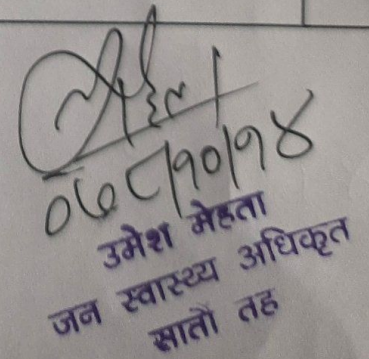 ०७८|१०|१४
उमेश मेहता
जन स्वास्थ्य अधिकृत
सातौं तह